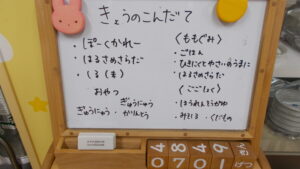 きょうのこんだて
・ぽーくかれー
・はるさめさらだ
・しる(も)
おやつ
ぎゅうにゅう
ぎゅうにゅう・かりんとう
〈ももぐみ〉
・ごはん
・ひきにくとやさいのうまに
・はるさめさらだ
〈ごごしょく〉
・ほうれんそうかゆ
・みそしる ・くだもの